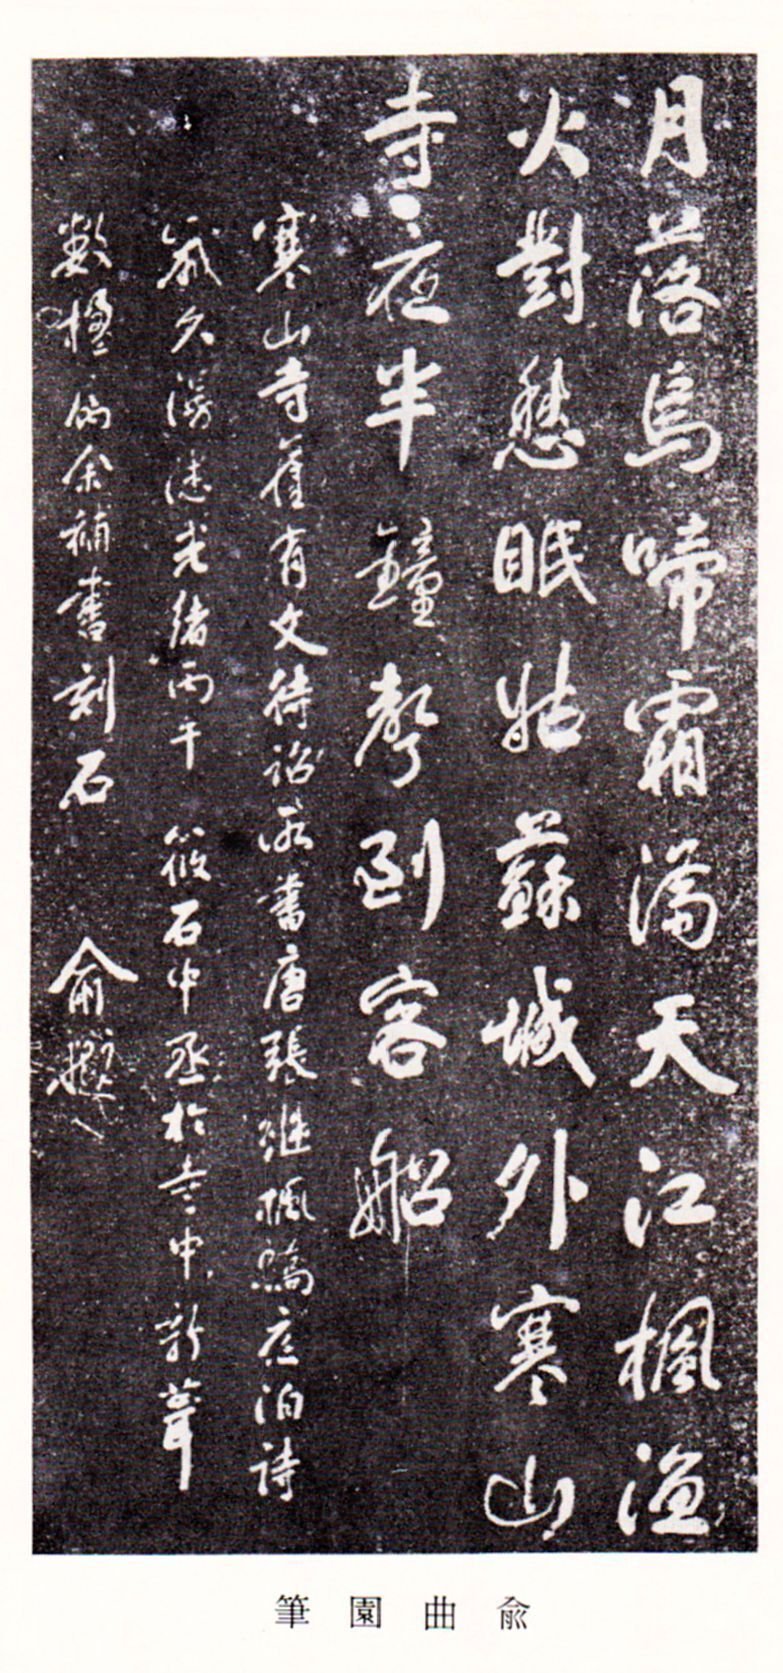 月落烏啼霜滿天江楓漁
火對愁眠姑蘇城外寒山
寺夜半鐘聲到客船
寒山寺舊有文待詔所書唐張繼楓橋夜泊詩
歲久漫漶光緒丙午 筱石中丞於寺中新葺
數楹屬余補書刻石 俞樾
兪曲園筆